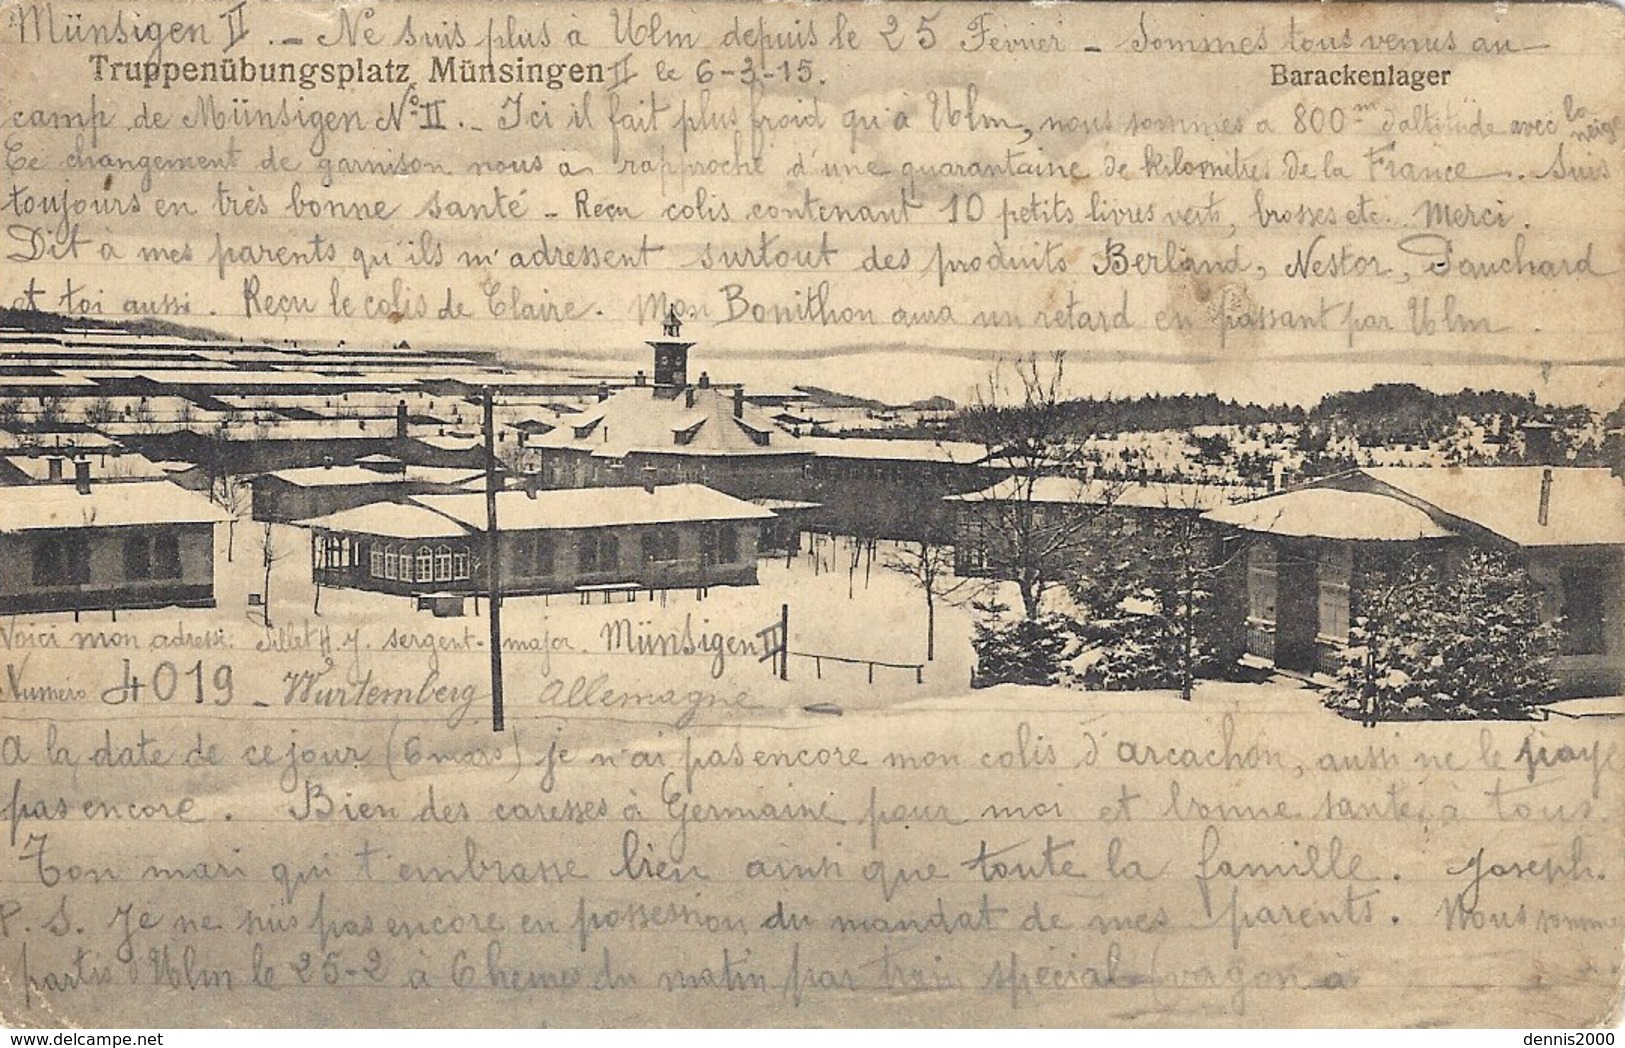 Münsigen II. - Ne suis plus à Ulm depuis le 25 Fevrier - Sommes tous venus au
Truppenübungsplatz Münsingen II le 6-3-15. Barackenlager
camp de Münsigen N° II. - Ici il fait plus froid qu'à Ulm, nous sommes a 800m d'altitude avec la neige
Ce changement de garnison nous a rapproché d'une quarantaine de kilomètres de la France. Suis
toujours en très bonne santé - Reçu colis contenant 10 petits livres verts, brosses etc. Merci.
Dit à mes parents qu'ils m'adressent surtout des produits Berland, Nestor, Pauchard
et toi aussi. Reçu le colis de Claire. Mon Bonithon aura un retard en passant par Ulm.
Voici mon adresse: Sillet H. J. sergent-major. Münsigen II
Numéro 4019 - Wurtemberg Allemagne
A la date de ce jour (6 mars) je n'ai pas encore mon colis d'arcachon, aussi ne le paye
pas encore. Bien des caresses à Germaine pour moi et bonne santé à tous.
Ton mari qui t'embrasse bien ainsi que toute la famille. Joseph.
P.S. Je ne suis pas encore en possession du mandat de mes parents. Nous sommes
partis d'Ulm le 25-2 à 6 heures du matin par train spécial (vagon à
dennis2000